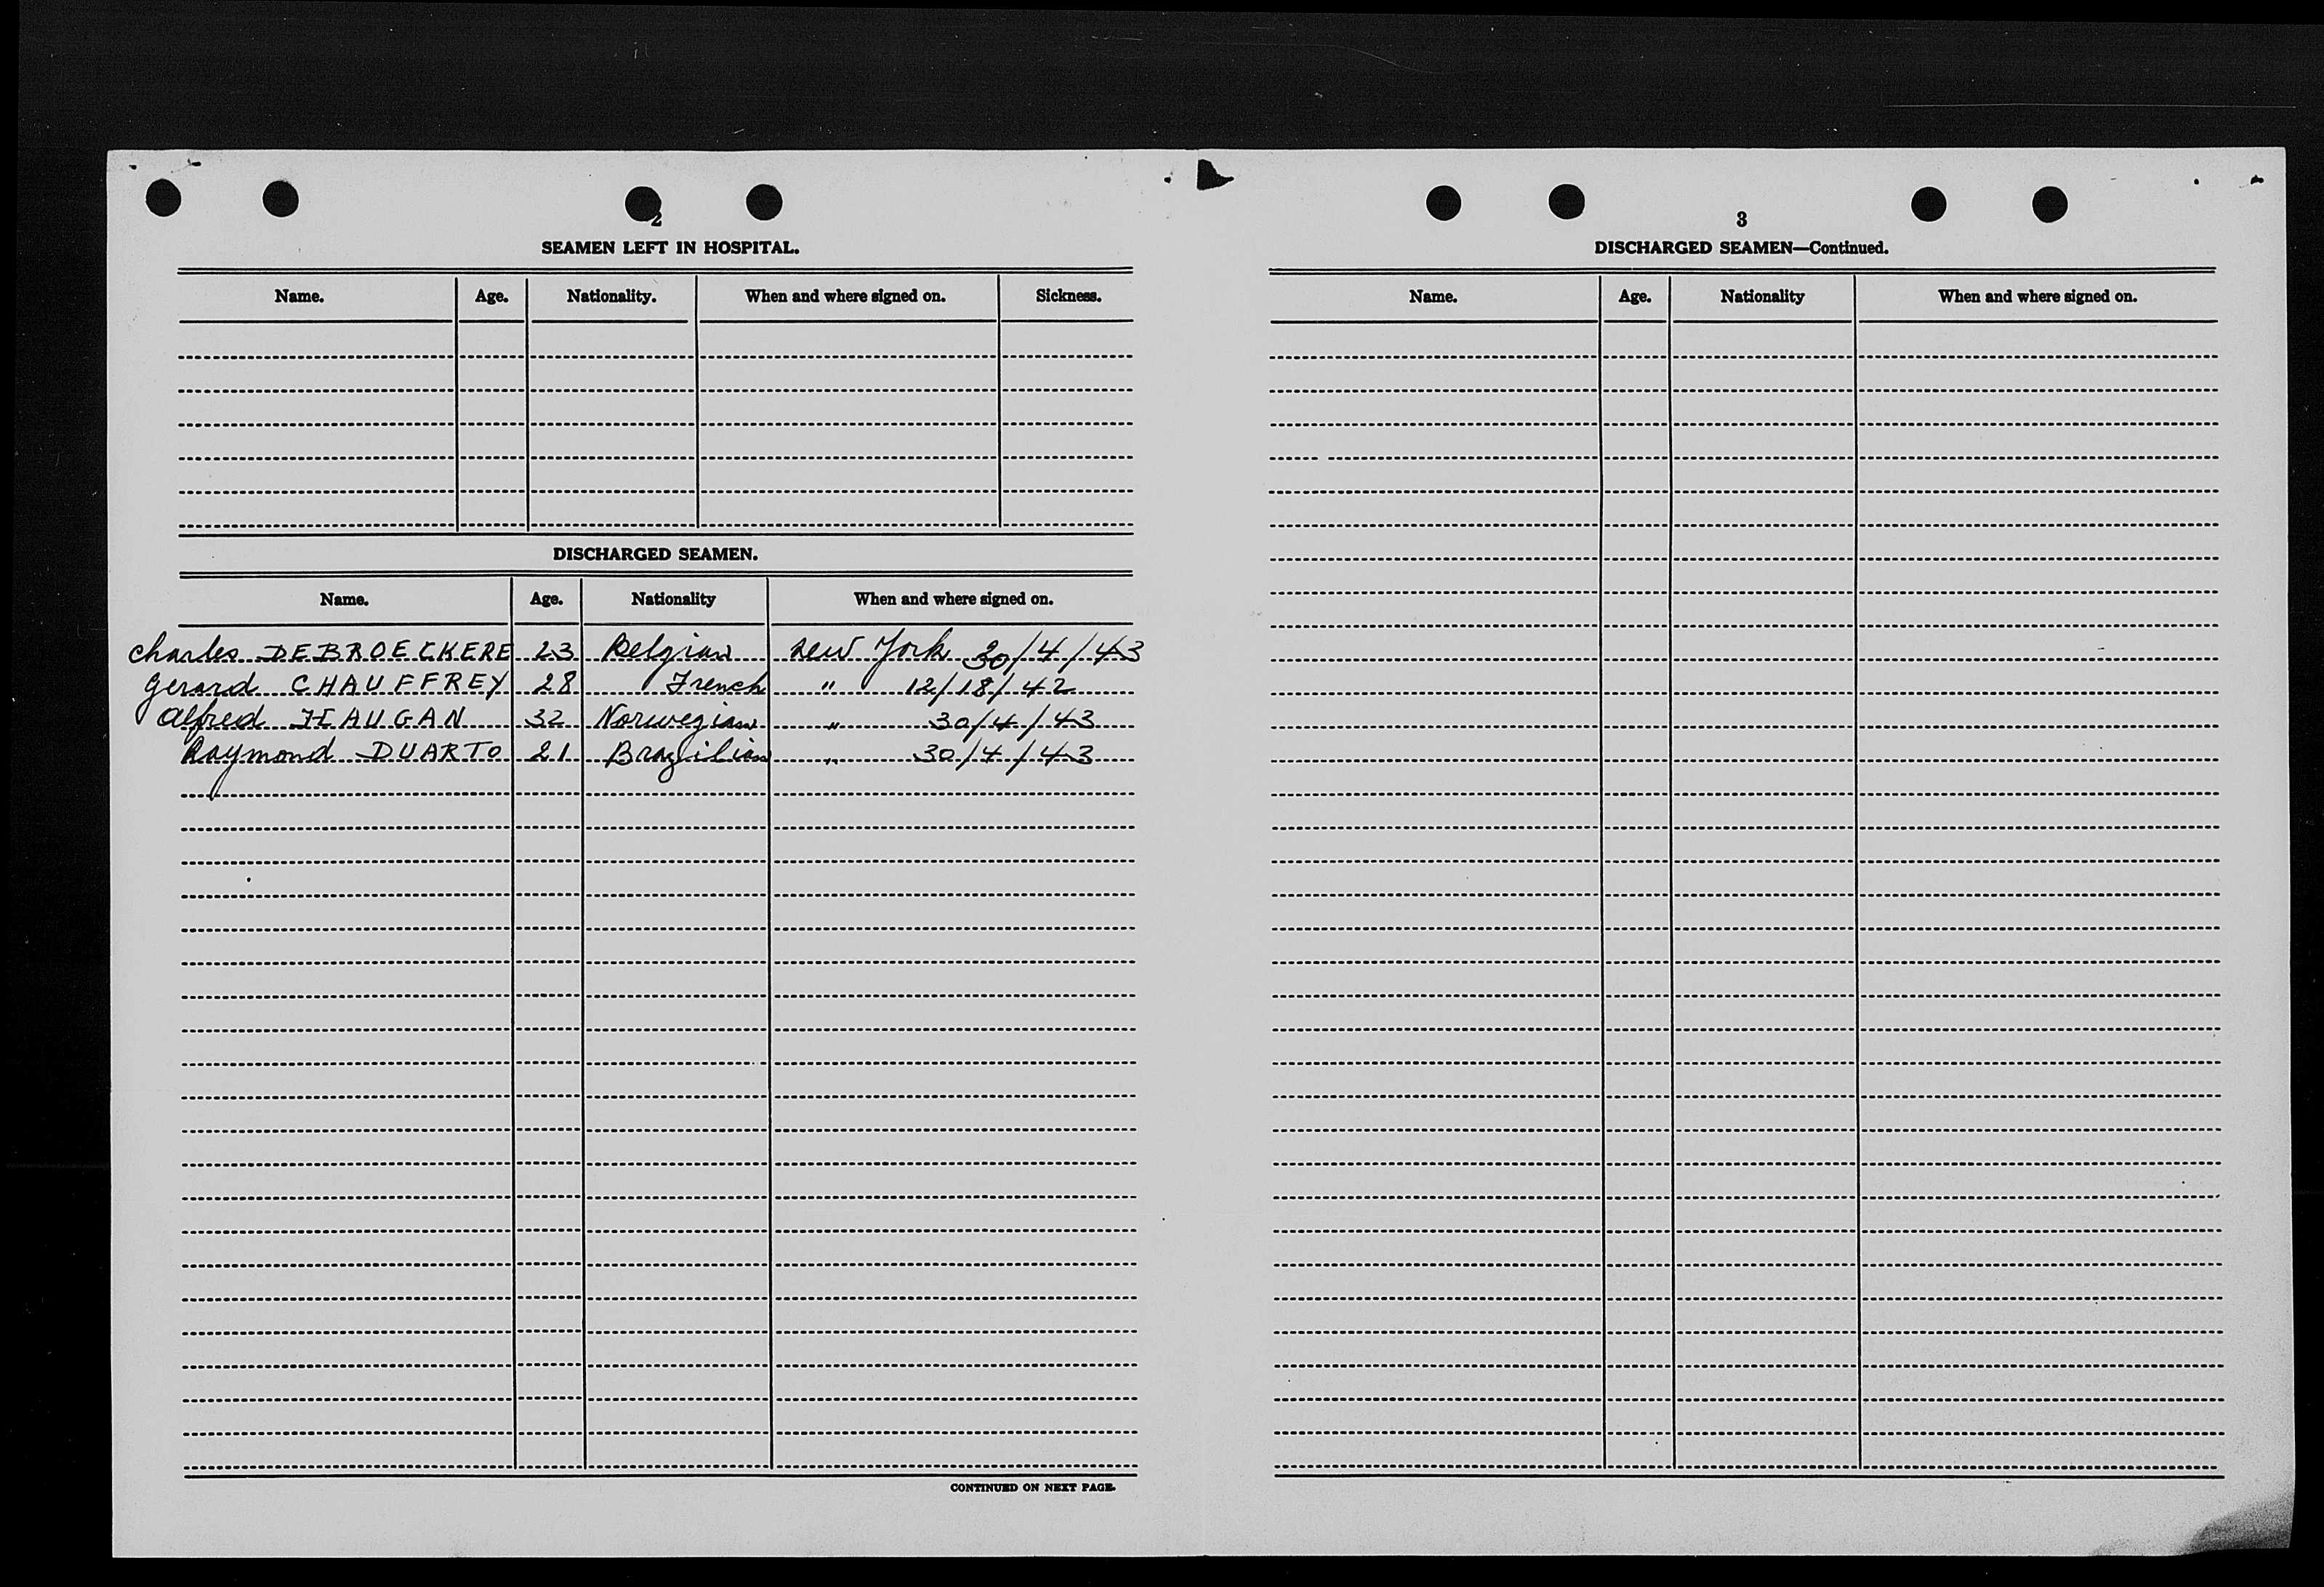 2
SEAMEN LEFT IN HOSPITAL.
Name. Age. Nationality. When and where signed on. Sickness.
DISCHARGED SEAMEN.
Name. Age. Nationality When and where signed on.
Charles DEBROECKERE 23 Belgian New York 30/4/43
Gerard CHAUFFREY 28 French " 12/18/42
Alfred HAUGAN 32 Norwegian " 30/4/43
Raymond DUARTO 21 Brazilian " 30/4/43
CONTINUED ON NEXT PAGE.
3
DISCHARGED SEAMEN—Continued.
Name. Age. Nationality When and where signed on.